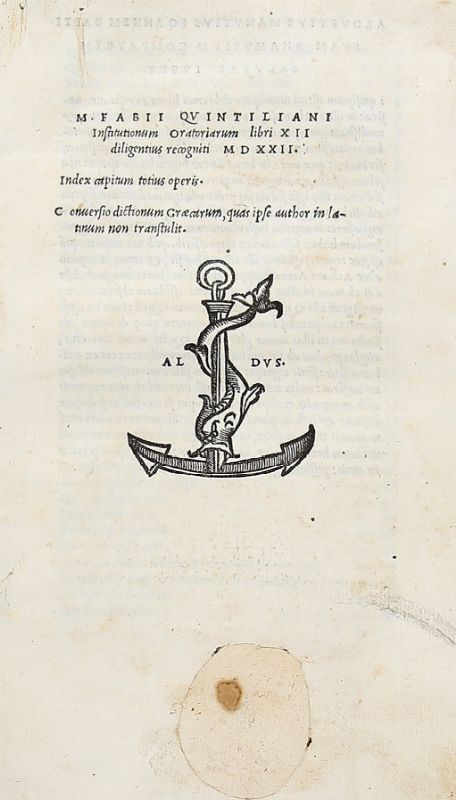 M. FABII QVINTILIANI
Institutionum Oratoriarum libri XII
diligentius recogniti MDXXII.
Index capitum totius operis.
Conuersio dictionum Græcarum, quas ipse author in la-
tinum non transtulit.
AL DVS.